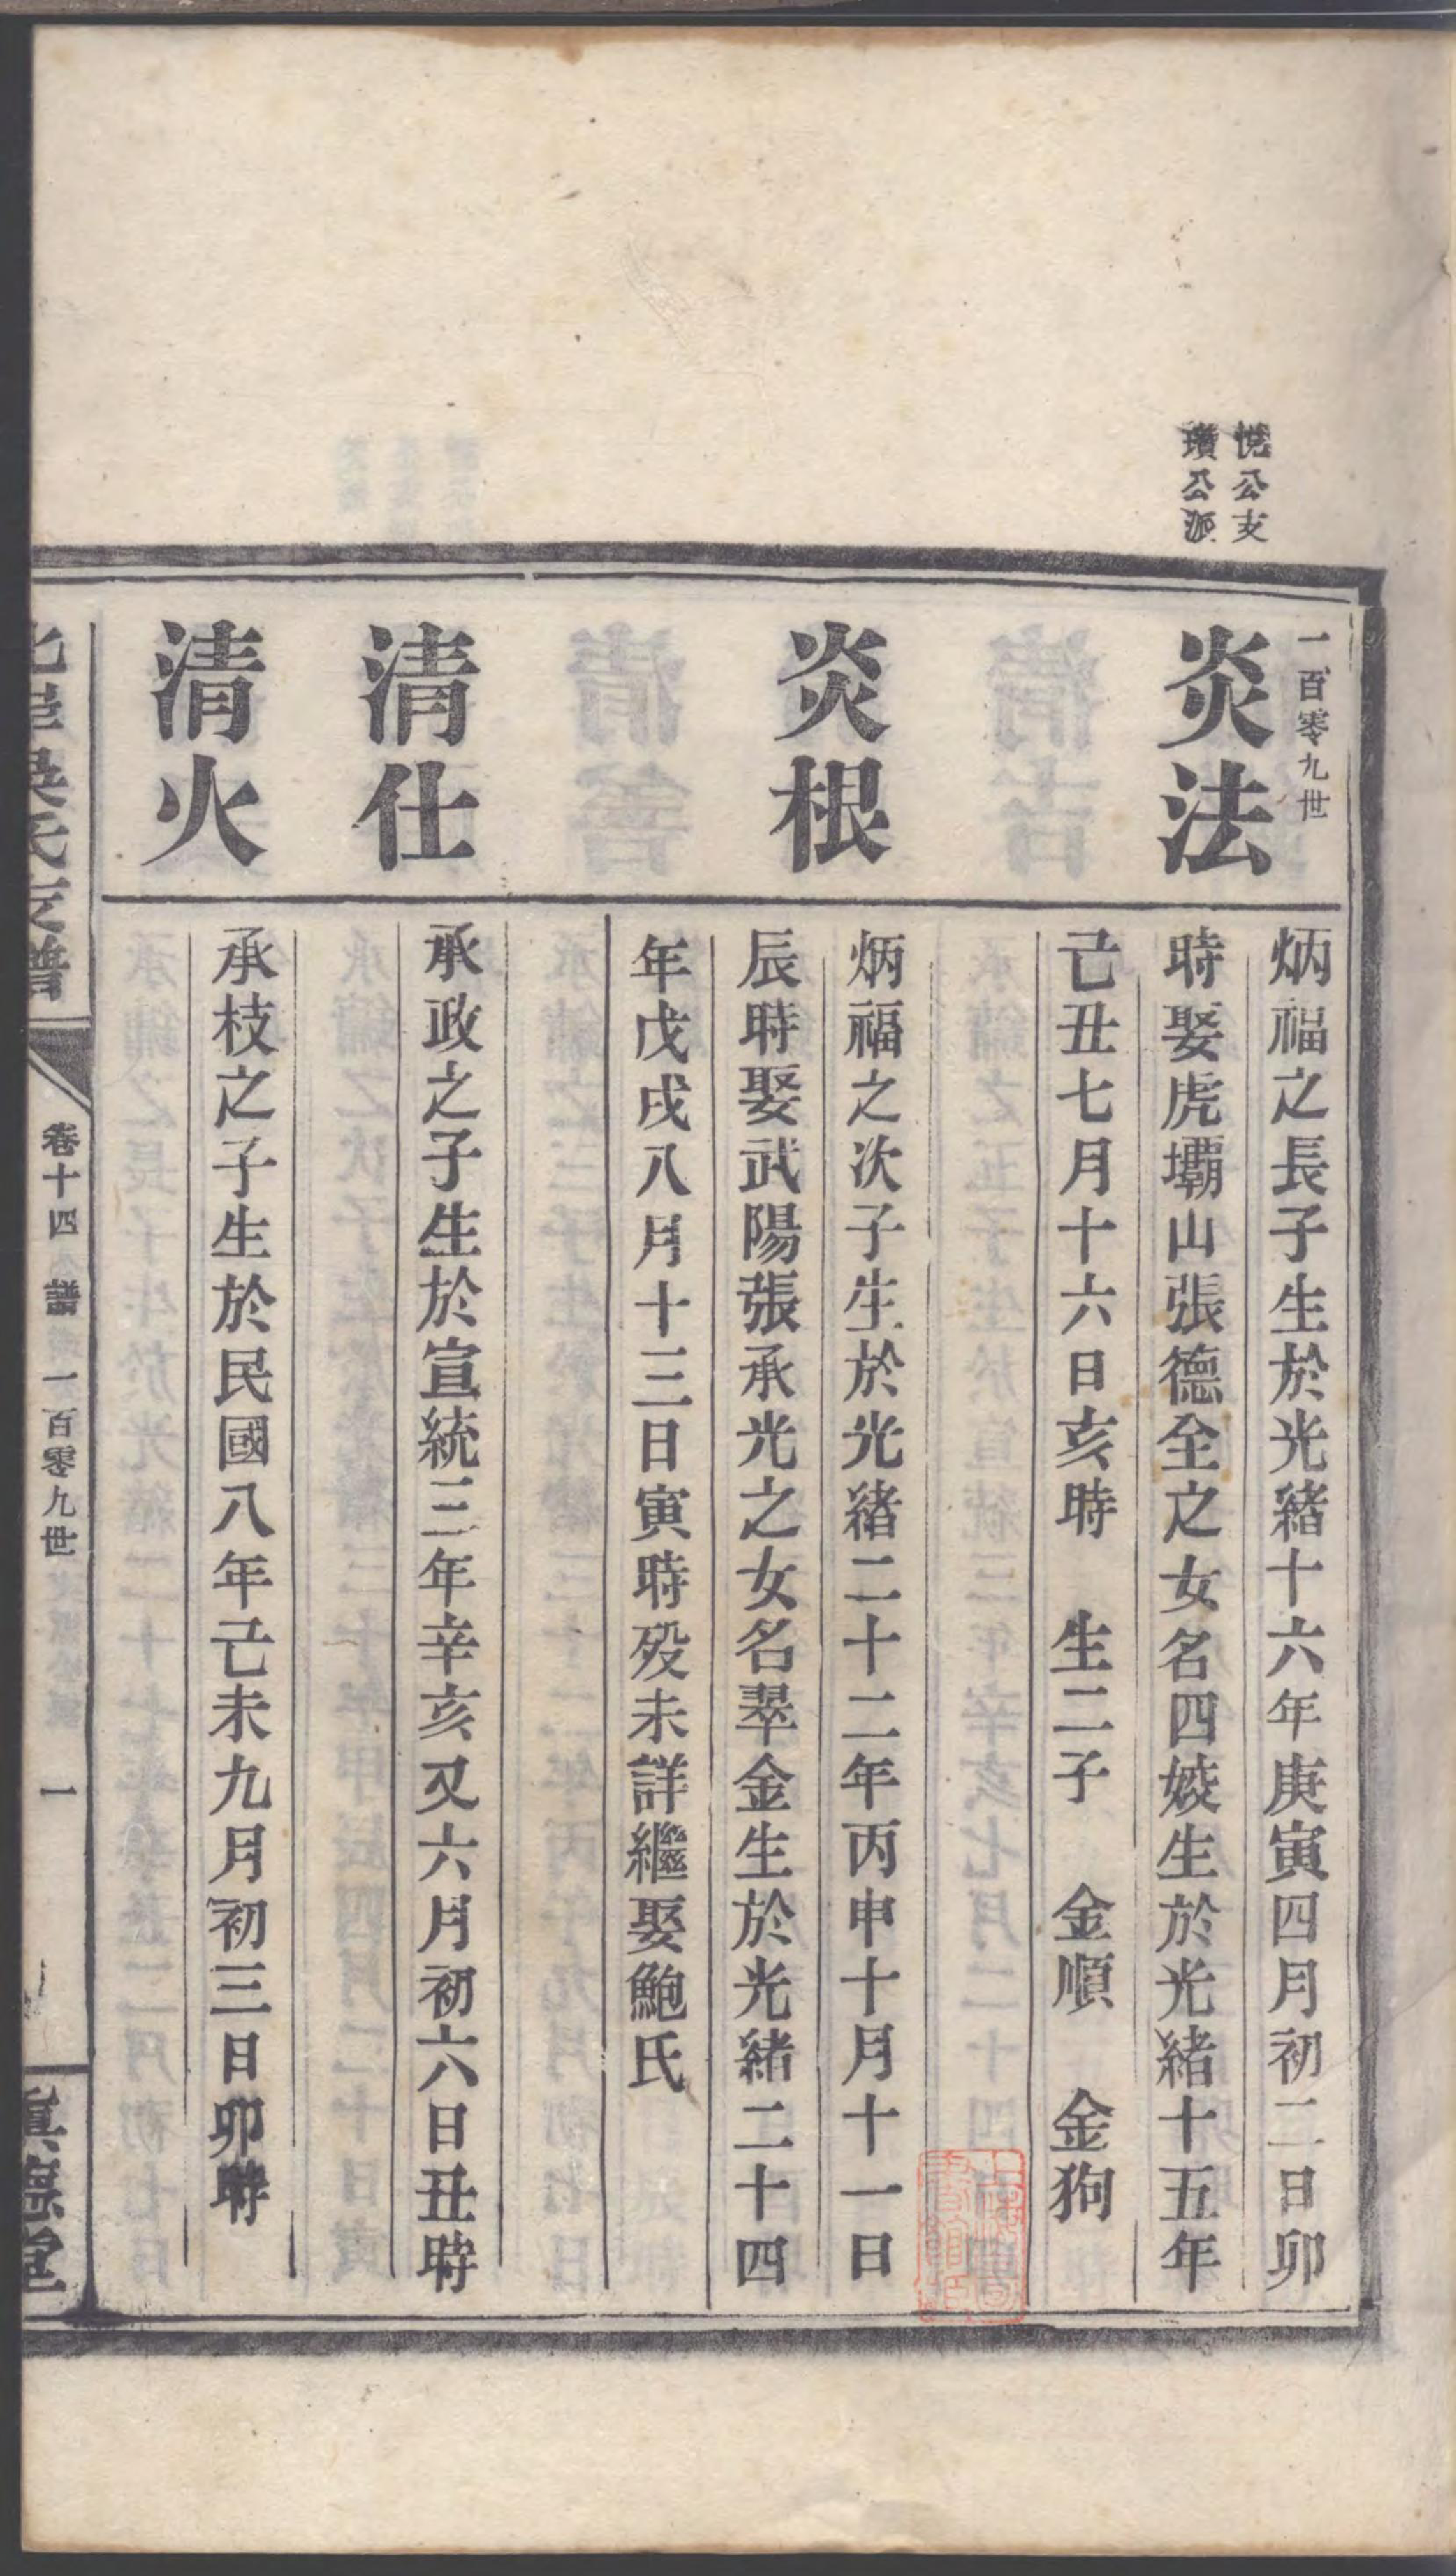 悅公支
瓚公派
一百零九世
炎法
炳福之長子生於光緒十六年庚寅四月初二日卯
時娶虎壩山張德全之女名四㛐生於光緒十五年
己丑七月十六日亥時　生二子　金順　金狗
炎根
炳福之次子生於光緒二十二年丙申十月十一日
辰時娶武陽張承光之女名翠金生於光緒二十四
年戊戌八月十三日寅時歿未詳繼娶鮑氏
清仕
承政之子生於宣統三年辛亥又六月初六日丑時
清火
承枝之子生於民國八年己未九月初三日卯時
吳氏支譜
卷十四　譜　一百零九世　一